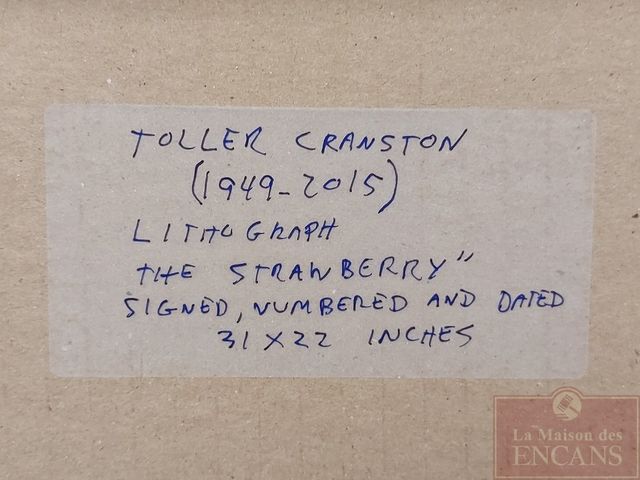 TOLLER CRANSTON
(1949-2015)
LITHOGRAPH
THE STRAWBERRY"
SIGNED, NUMBERED AND DATED
31 X 22 INCHES
La Maison des
ENCANS